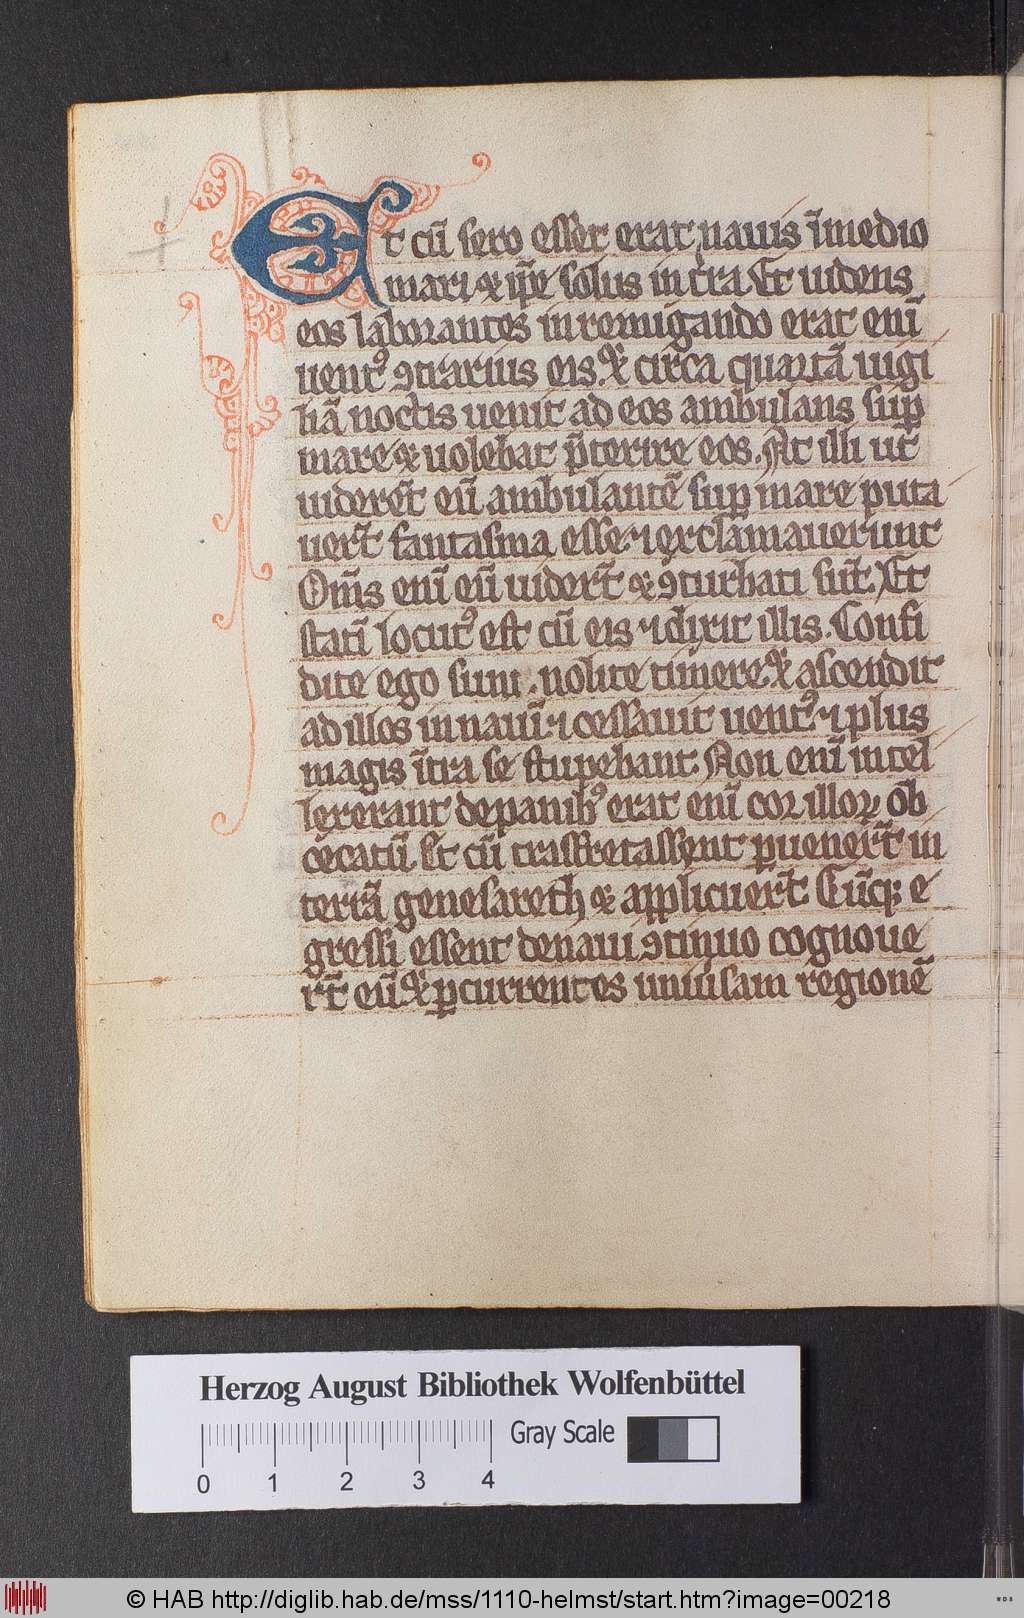 Et cū sero esset erat nauis ī medio
mari ⁊ ip̄e solus in t̄ra Et uidens
eos laborantes in remigando erat enī
uentꝰ ꝯtrarius eis. ⁊ circa quartā uigi
liā noctis uenit ad eos ambulans sup̄
mare ⁊ uolebat p̄terire eos. At illi ut
uider̄t eū ambulantē sup mare puta
uer̄t fantasma esse. ⁊ exclamauerunt
Om̄s enī eū uider̄t ⁊ ꝯturbati sūt. Et
statī locutꝰ est cū eis ⁊ dixit illis. Confi
dite ego sum. nolite timere. ⁊ ascendit
ad illos in nauī ⁊ cessauit uentꝰ. ⁊ plus
magis īt̄ra se stupebant. Non enī intel
lexerant de panibꝰ erat enī cor illoꝝ ob
cecatū. Et cū trasfretassent ꝑuener̄t in
terrā genesareth ⁊ applicuer̄t. Cūcqꝫ e
gressi essent de naui ꝯtinuo cognoue
rt̄ eū. ⁊ ꝑcurrentes uniūsam regionē
Herzog August Bibliothek Wolfenbüttel
0 1 2 3 4 Gray Scale
© HAB http://diglib.hab.de/mss/1110-helmst/start.htm?image=00218